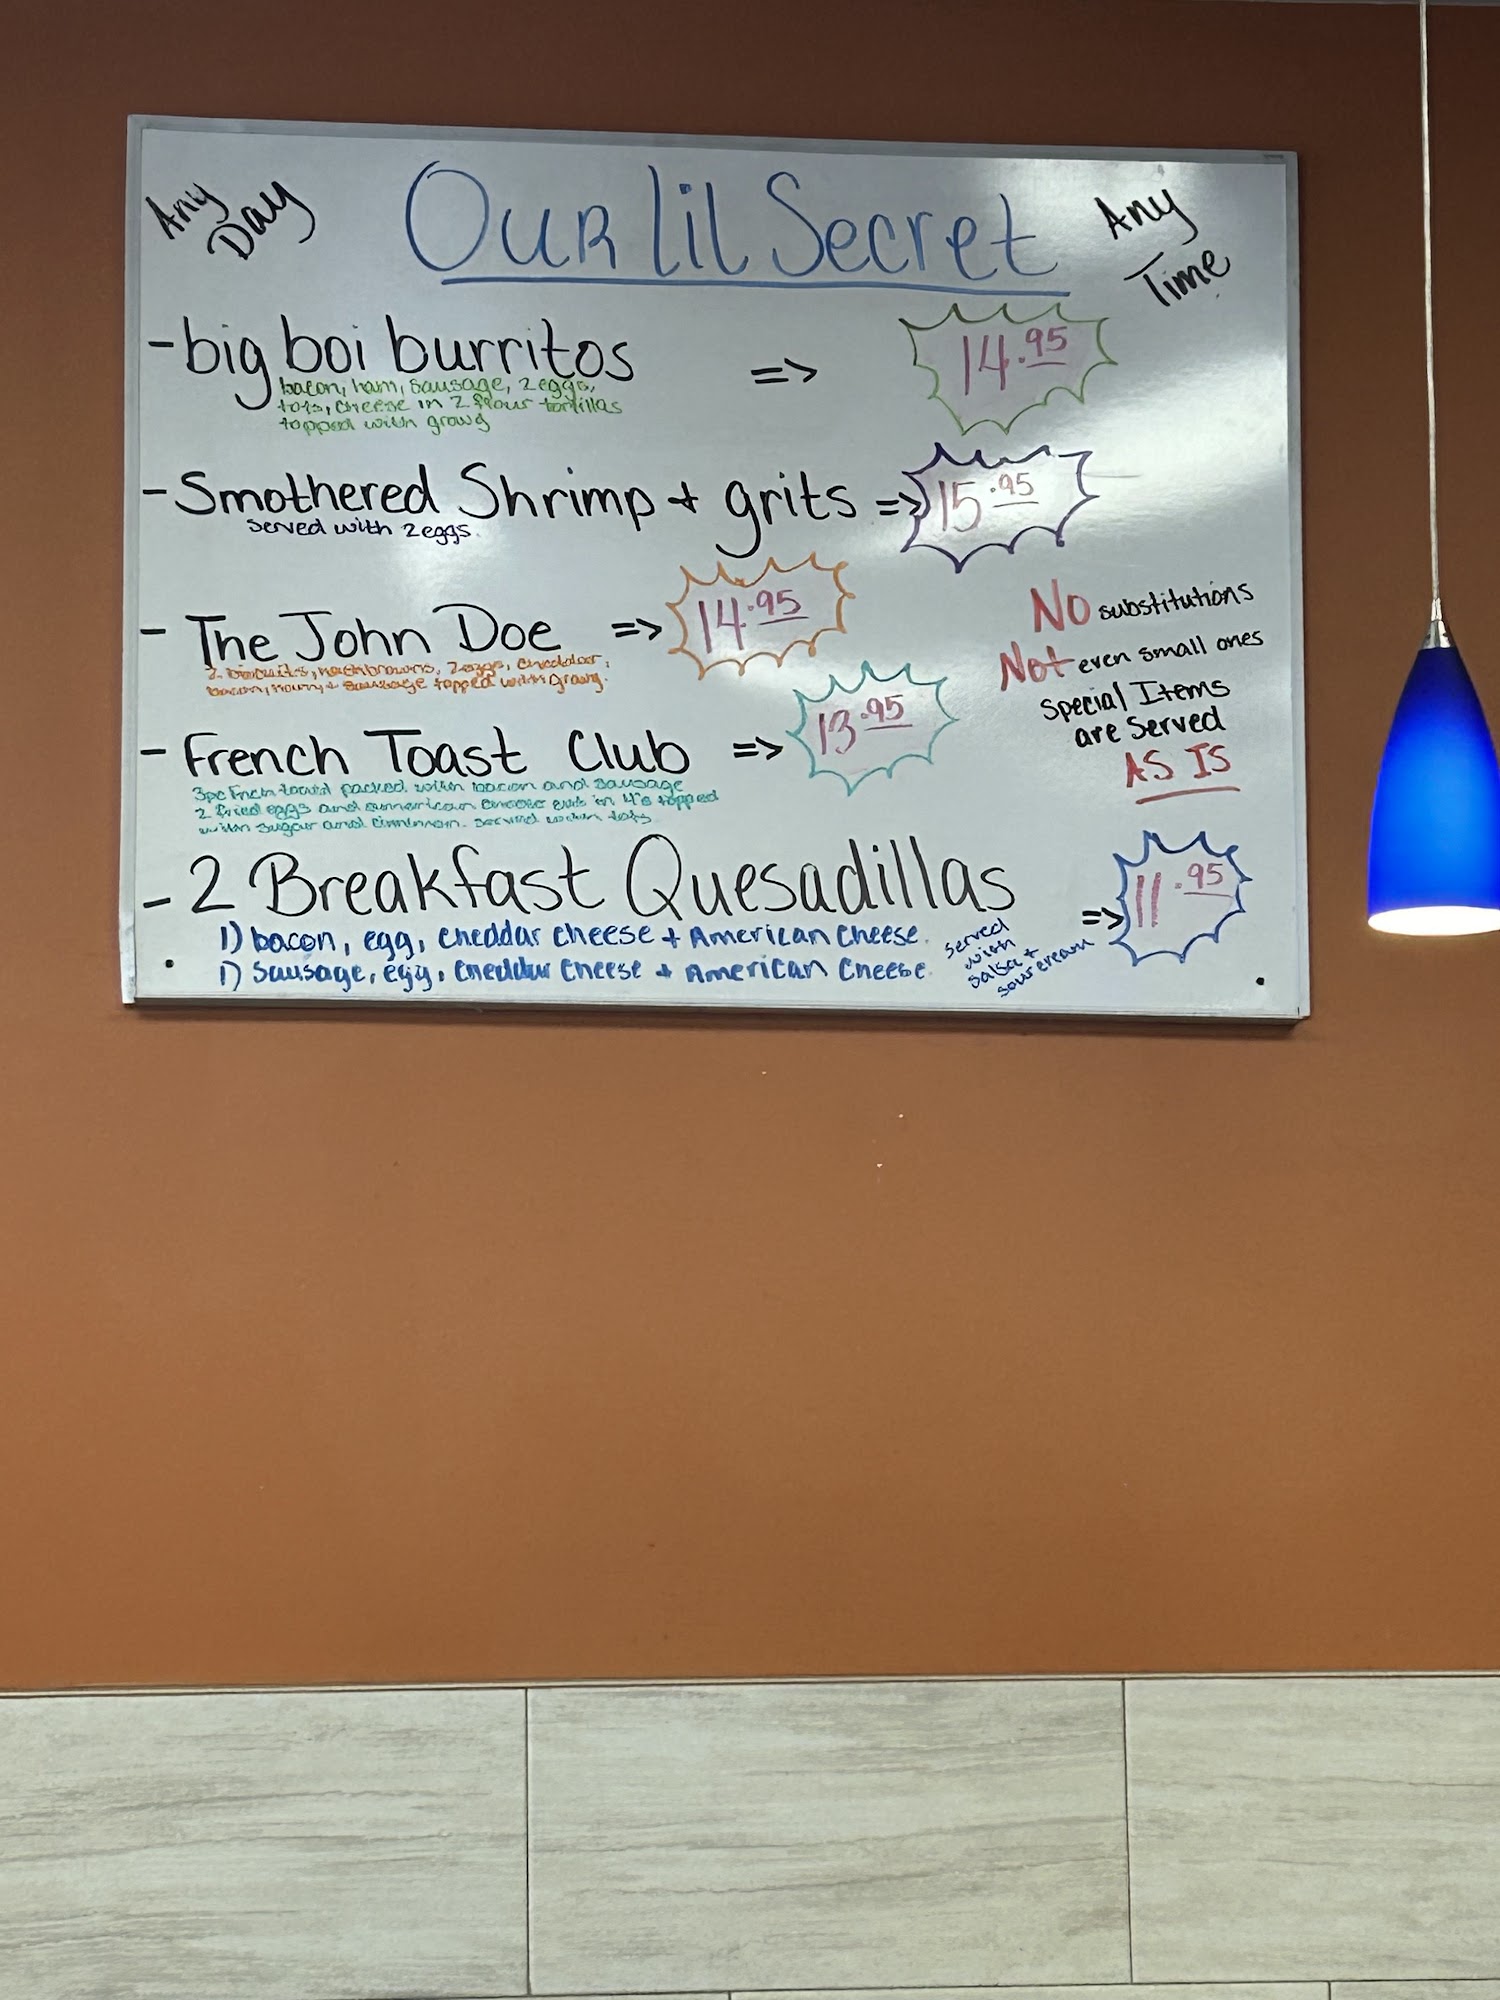 Any
Day
Our lil Secret
Any
Time
- big boi burritos => 14.95
bacon, ham, sausage, 2 eggs,
tots, cheese in 2 flour tortillas
topped with gravy
- Smothered Shrimp + grits => 15.95
served with 2 eggs.
- The John Doe => 14.95
2 biscuits, hashbrowns, 2 eggs, cheddar,
bacon, ham, + sausage topped with gravy.
NO substitutions
Not even small ones
special Items
are served
AS IS
- French Toast Club => 13.95
3pc french toast packed with bacon and sausage
2 fried eggs and american cheese cut in 4's topped
with sugar and served with tots
- 2 Breakfast Quesadillas => 11.95
1) bacon, egg, cheddar cheese + American cheese.
1) sausage, egg, cheddar cheese + American cheese.
served
with
salsa +
sour cream